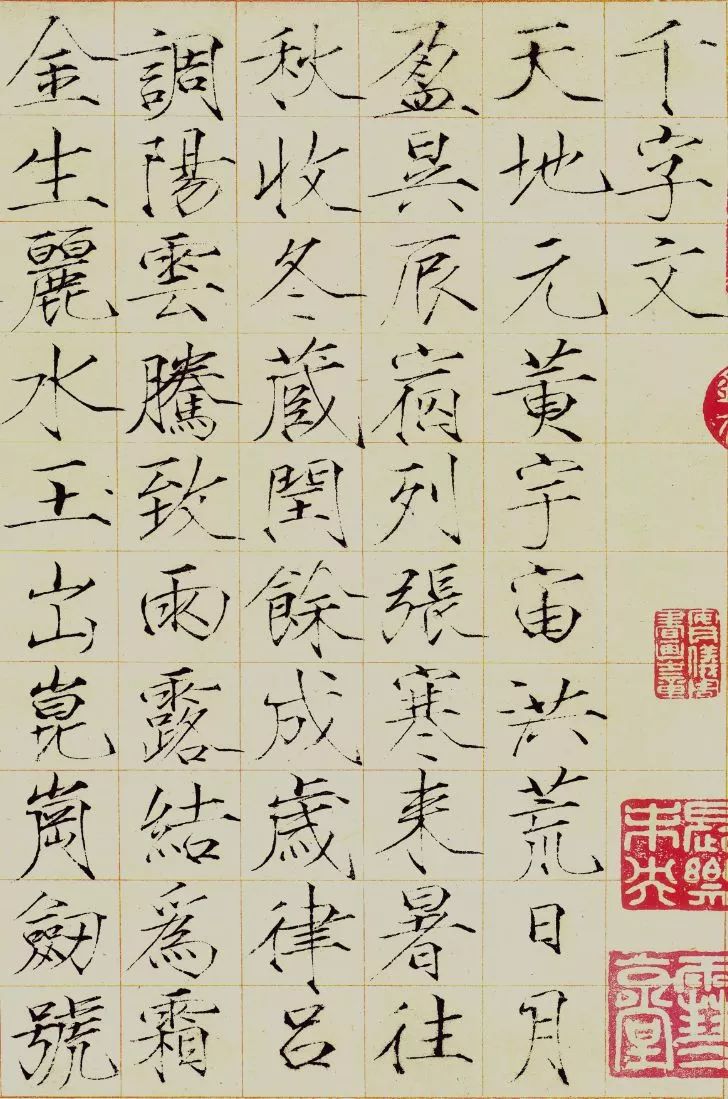 千字文
天地元黄宇宙洪荒日月
盈昃辰宿列張寒来暑往
秋收冬蔵閏餘成歲律吕
調陽雲騰致雨露結爲霜
金生麗水玉出崑崗劒號
長樂未央